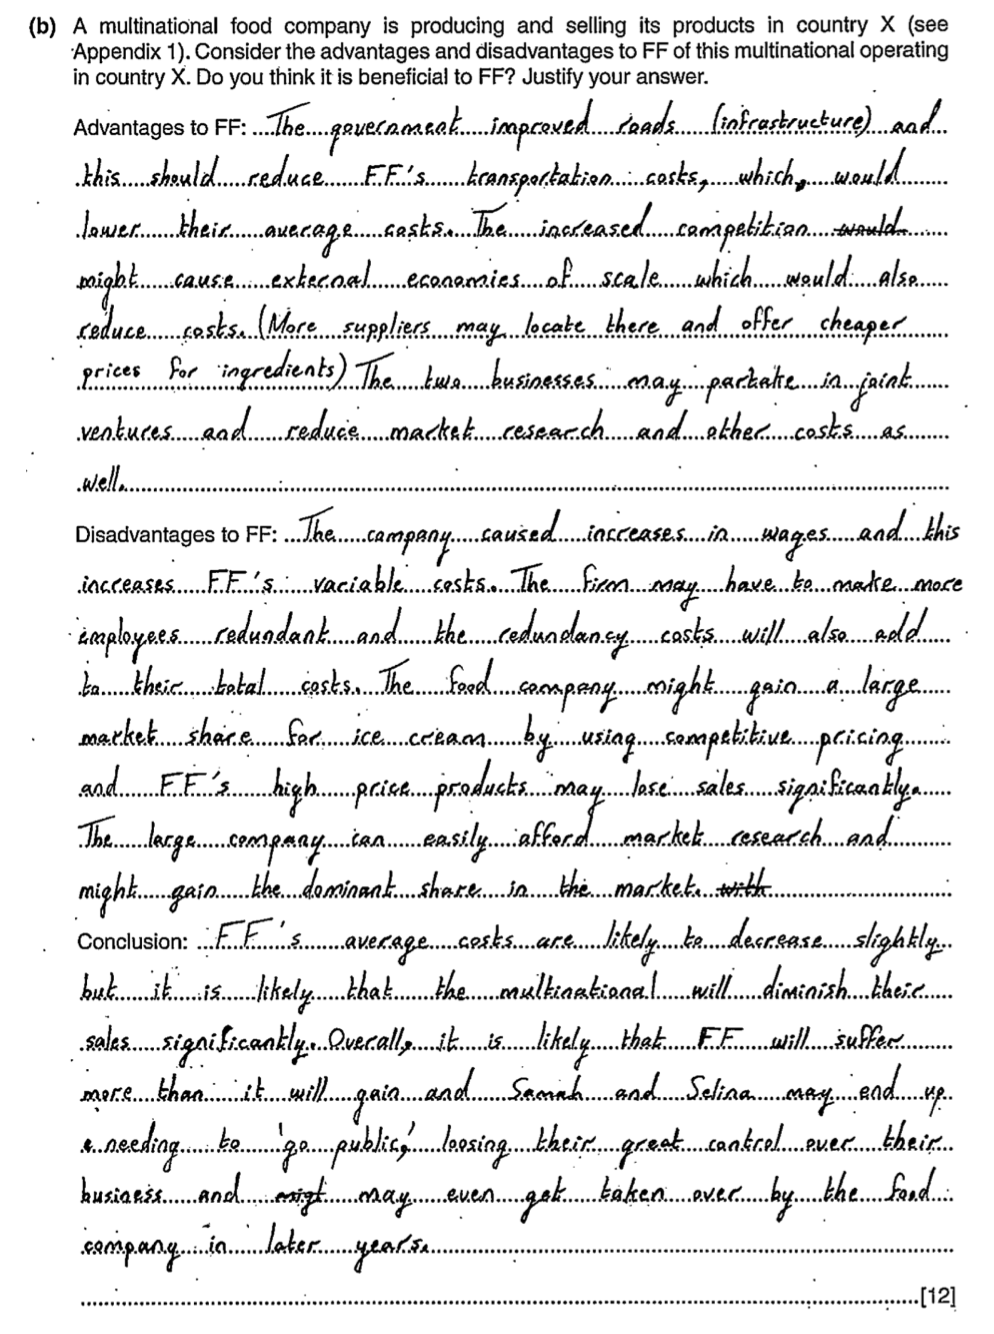 (b) A multinational food company is producing and selling its products in country X (see
Appendix 1). Consider the advantages and disadvantages to FF of this multinational operating
in country X. Do you think it is beneficial to FF? Justify your answer.
Advantages to FF: The government improved roads (infrastructure) and
this should reduce FF's transportation costs, which, would
lower their average costs. The increased competition would
might cause external economies of scale which would also
reduce costs. (More suppliers may locate there and offer cheaper
prices for ingredients) The two businesses may partake in joint
ventures and reduce market research and other costs as
well.
Disadvantages to FF: The company caused increases in wages and this
increases FF's variable costs. The firm may have to make more
employees redundant and the redundancy costs will also add
to their total costs. The food company might gain a large
market share for ice cream by using competitive pricing
and FF's high price products may lose sales significantly.
The large company can easily afford market research and
might gain the dominant share in the market. with
Conclusion: FF's average costs are likely to decrease slightly
but it is likely that the multinational will diminish their
sales significantly. Overall, it is likely that FF will suffer
more than it will gain and Samah and Selina may end up
needing to 'go public,' loosing their great control over their
business and migt may even get taken over by the food
company in later years.
[12]